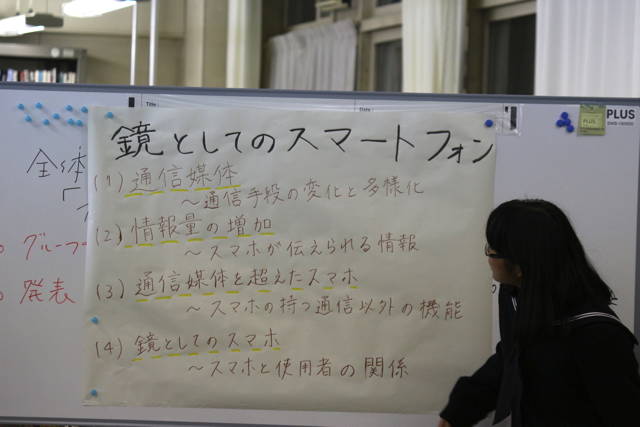 Title :
Date :
PLUS
PLUS
全体
鏡としてのスマートフォン
(1) 通信媒体
～通信手段の変化と多様化
(2) 情報量の増加
～スマホが伝えられる情報
(3) 通信媒体を超えたスマホ
～スマホの持つ通信以外の機能
(4) 鏡としてのスマホ
～スマホと使用者の関係
グループ
発表